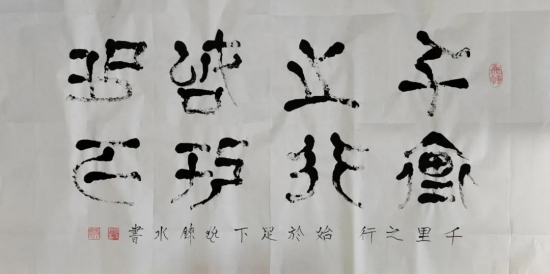 千里
之行
始於
足下
千里之行 始於足下 水書